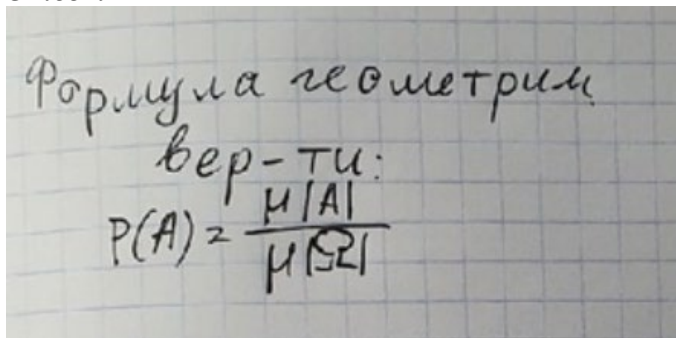 Формула геометрии
вер-ти:
P(A) = μ|A| / μ|Ω|